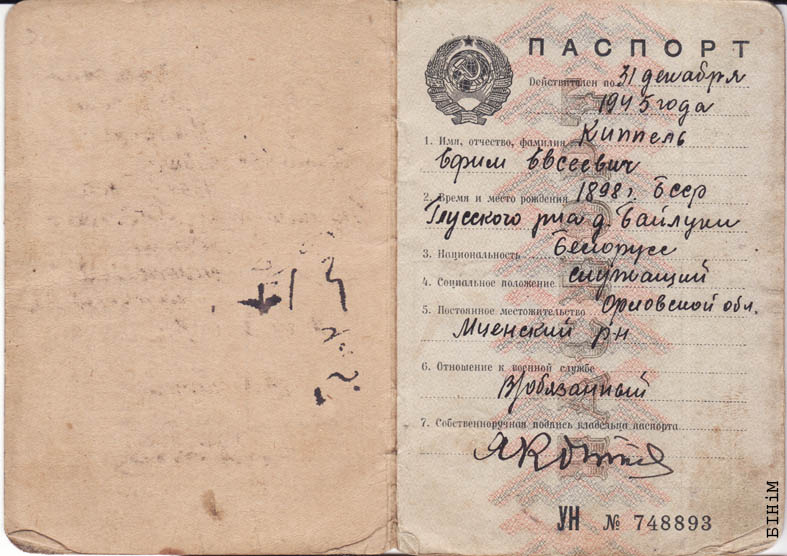 ПАСПОРТ
Действителен по 31 декабря
1945 года
1. Имя, отчество, фамилия Киппель
Ефим Евсеевич
2. Время и место рождения 1898 г. БССР
Глусского р-на д. Байлуки
3. Национальность Белорусс
4. Социальное положение служащий
5. Постоянное местожительство Орловской обл.
Мценский рн
6. Отношение к военной службе
В/обязанный
7. Собственноручная подпись владельца паспорта
УН № 748893
БІНіМ